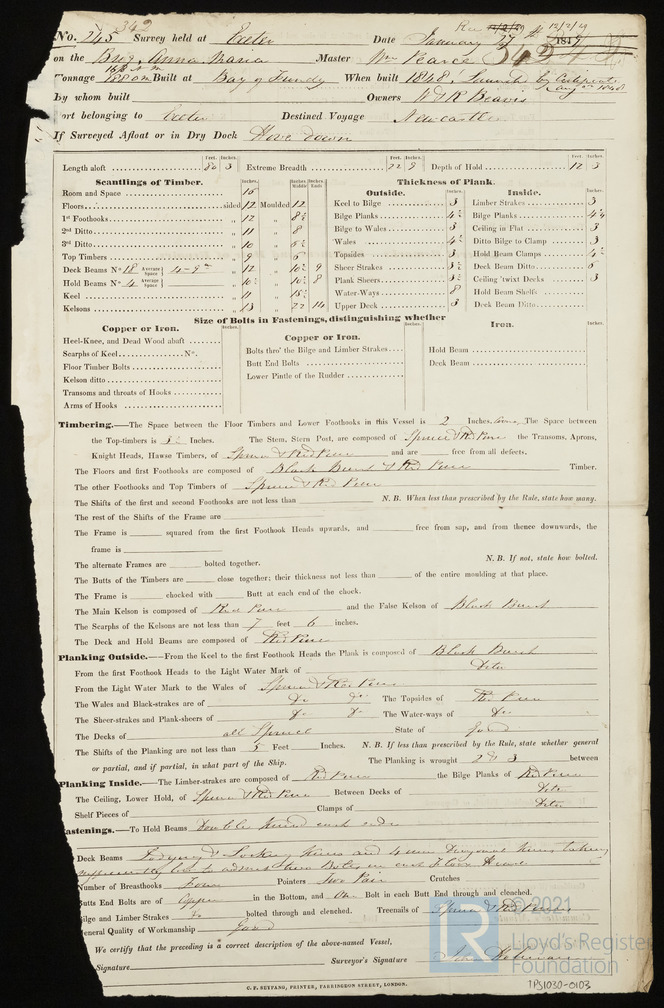 342
No. 245 Survey held at Exeter Date January 27th 1849
Rec 12/2/49
on the Brig Anna Maria Master Wm Pearce 342
Tonnage Built at Bay of Fundy When built 1848, Launch by Certificate Augst 1848
By whom built Owners W & R Beavis
Port belonging to Exeter Destined Voyage Newcastle
If Surveyed Afloat or in Dry Dock Hove down
Feet. Inches. Feet. Inches. Feet. Inches.
Length aloft 80 3 Extreme Breadth 22 9 Depth of Hold 12 3
Scantlings of Timber. Thickness of Plank.
Outside. Inside.
Room and Space
Floors sided 12 Moulded 12
1st Foothooks " 12 "
2nd Ditto " 11 " 8
3rd Ditto " 10 "
Top Timbers " 9 "
Deck Beams No. 18 Average Space " 12 "
Hold Beams No. 4 Average Space "
Keel " 11 "
Kelsons " 13 " 22 14
Keel to Bilge 3
Bilge Planks
Bilge to Wales 3
Wales
Topsides 3
Sheer Strakes
Plank Sheers
Water-Ways 8
Upper Deck 3
Limber Strakes 3
Bilge Planks
Ceiling in Flat 3
Ditto Bilge to Clamp 3
Hold Beam Clamps
Deck Beam Ditto
Ceiling 'twixt Decks 3
Hold Beam Shelfs
Deck Beam Ditto
Size of Bolts in Fastenings, distinguishing whether
Copper or Iron. Inches. Copper or Iron. Inches. Iron. Inches.
Heel-Knee, and Dead Wood abaft
Scarphs of Keel No.
Floor Timber Bolts
Kelson ditto
Transoms and throats of Hooks
Arms of Hooks
Bolts thro' the Bilge and Limber Strakes
Butt End Bolts
Lower Pintle of the Rudder
Hold Beam
Deck Beam
Timbering.—The Space between the Floor Timbers and Lower Foothooks in this Vessel is 2 Inches. The Space between
the Top-timbers is Inches. The Stem, Stern Post, are composed of Spruce & Red Pine the Transoms, Aprons,
Knight Heads, Hawse Timbers, of Spruce & Red Pine and are free from all defects.
The Floors and first Foothooks are composed of Black Burch & Red Pine Timber.
The other Foothooks and Top Timbers of Spruce & Red Pine
The Shifts of the first and second Foothooks are not less than N. B. When less than prescribed by the Rule, state how many.
The rest of the Shifts of the Frame are
The Frame is squared from the first Foothook Heads upwards, and free from sap, and from thence downwards, the
frame is
The alternate Frames are bolted together. N. B. If not, state how bolted.
The Butts of the Timbers are close together; their thickness not less than of the entire moulding at that place.
The Frame is chocked with Butt at each end of the chock.
The Main Kelson is composed of Red Pine and the False Kelson of Black Burch
The Scarphs of the Kelsons are not less than 7 feet 6 inches.
The Deck and Hold Beams are composed of Red Pine
Planking Outside.—From the Keel to the first Foothook Heads the Plank is composed of Black Burch
From the first Foothook Heads to the Light Water Mark of Ditto
From the Light Water Mark to the Wales of Spruce & Red Pine
The Wales and Black-strakes are of Do Do The Topsides of Red Pine
The Sheer-strakes and Plank-sheers of Do Do The Water-ways of Do
The Decks of all Spruce State of good
The Shifts of the Planking are not less than 5 Feet Inches. N. B. If less than prescribed by the Rule, state whether general
or partial, and if partial, in what part of the Ship. The Planking is wrought 2 & 3 between
Planking Inside.—The Limber-strakes are composed of Red Pine the Bilge Planks of Red Pine
The Ceiling, Lower Hold, of Spruce & Red Pine Between Decks of Ditto
Shelf Pieces of Clamps of Ditto
Fastenings.—To Hold Beams Double kneed each end
Deck Beams Lodging &
Number of Breasthooks Four Pointers Two Pair Crutches
Butts End Bolts are of Copper in the Bottom, and One Bolt in each Butt End through and clenched.
Bilge and Limber Strakes Do bolted through and clenched. Treenails of Spruce & Red Pine
General Quality of Workmanship good
We certify that the preceding is a correct description of the above-named Vessel,
Signature Surveyor's Signature
C. F. SEYFANG, PRINTER, FARRINGDON STREET, LONDON.
LR © 2021
Lloyd's Register
Foundation
IPS1030-0103